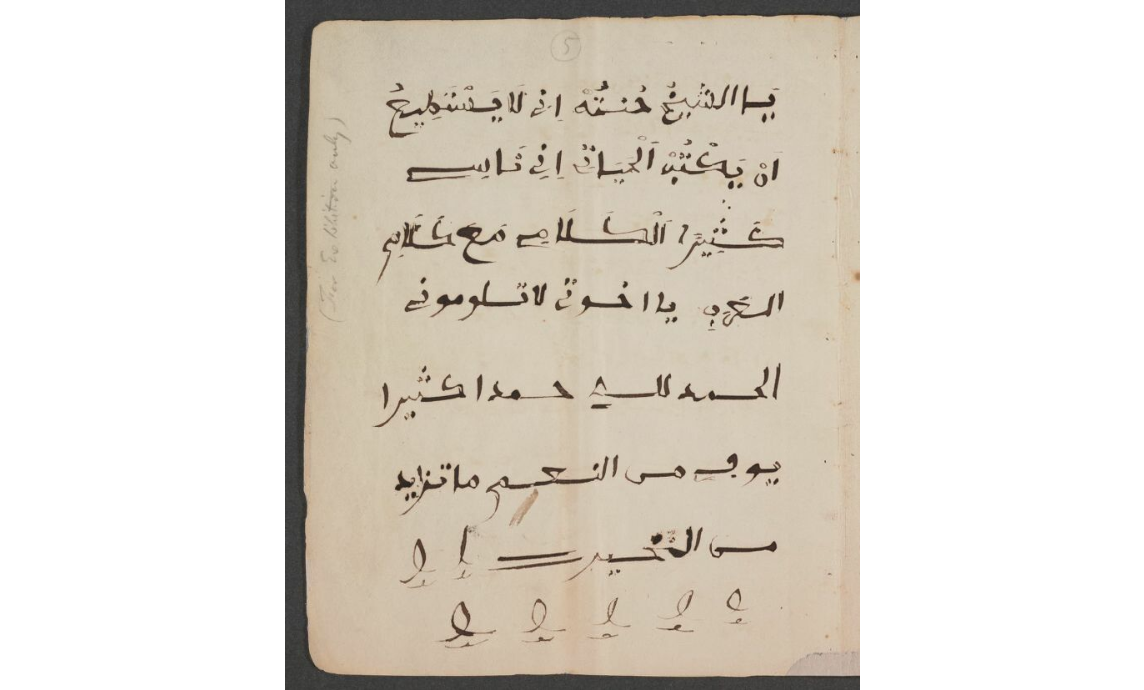 5
يَا الشَّيْخُ حُنتُهْ اِنِي لَا يَسْتَطِيعُ
اَنْ يَكْتُبْ اَلْحَيَاتِي اِنِي نَاسِي
كَثِيرًا اَلْكَلَامِي مَعَ كَلَامِ
العَرَبِ يا اخوتي لا تلوموني
الحمد للله حمدا كثيرا
يوفي من النعم ما تزايد
من الخير
(For Exhibition only)